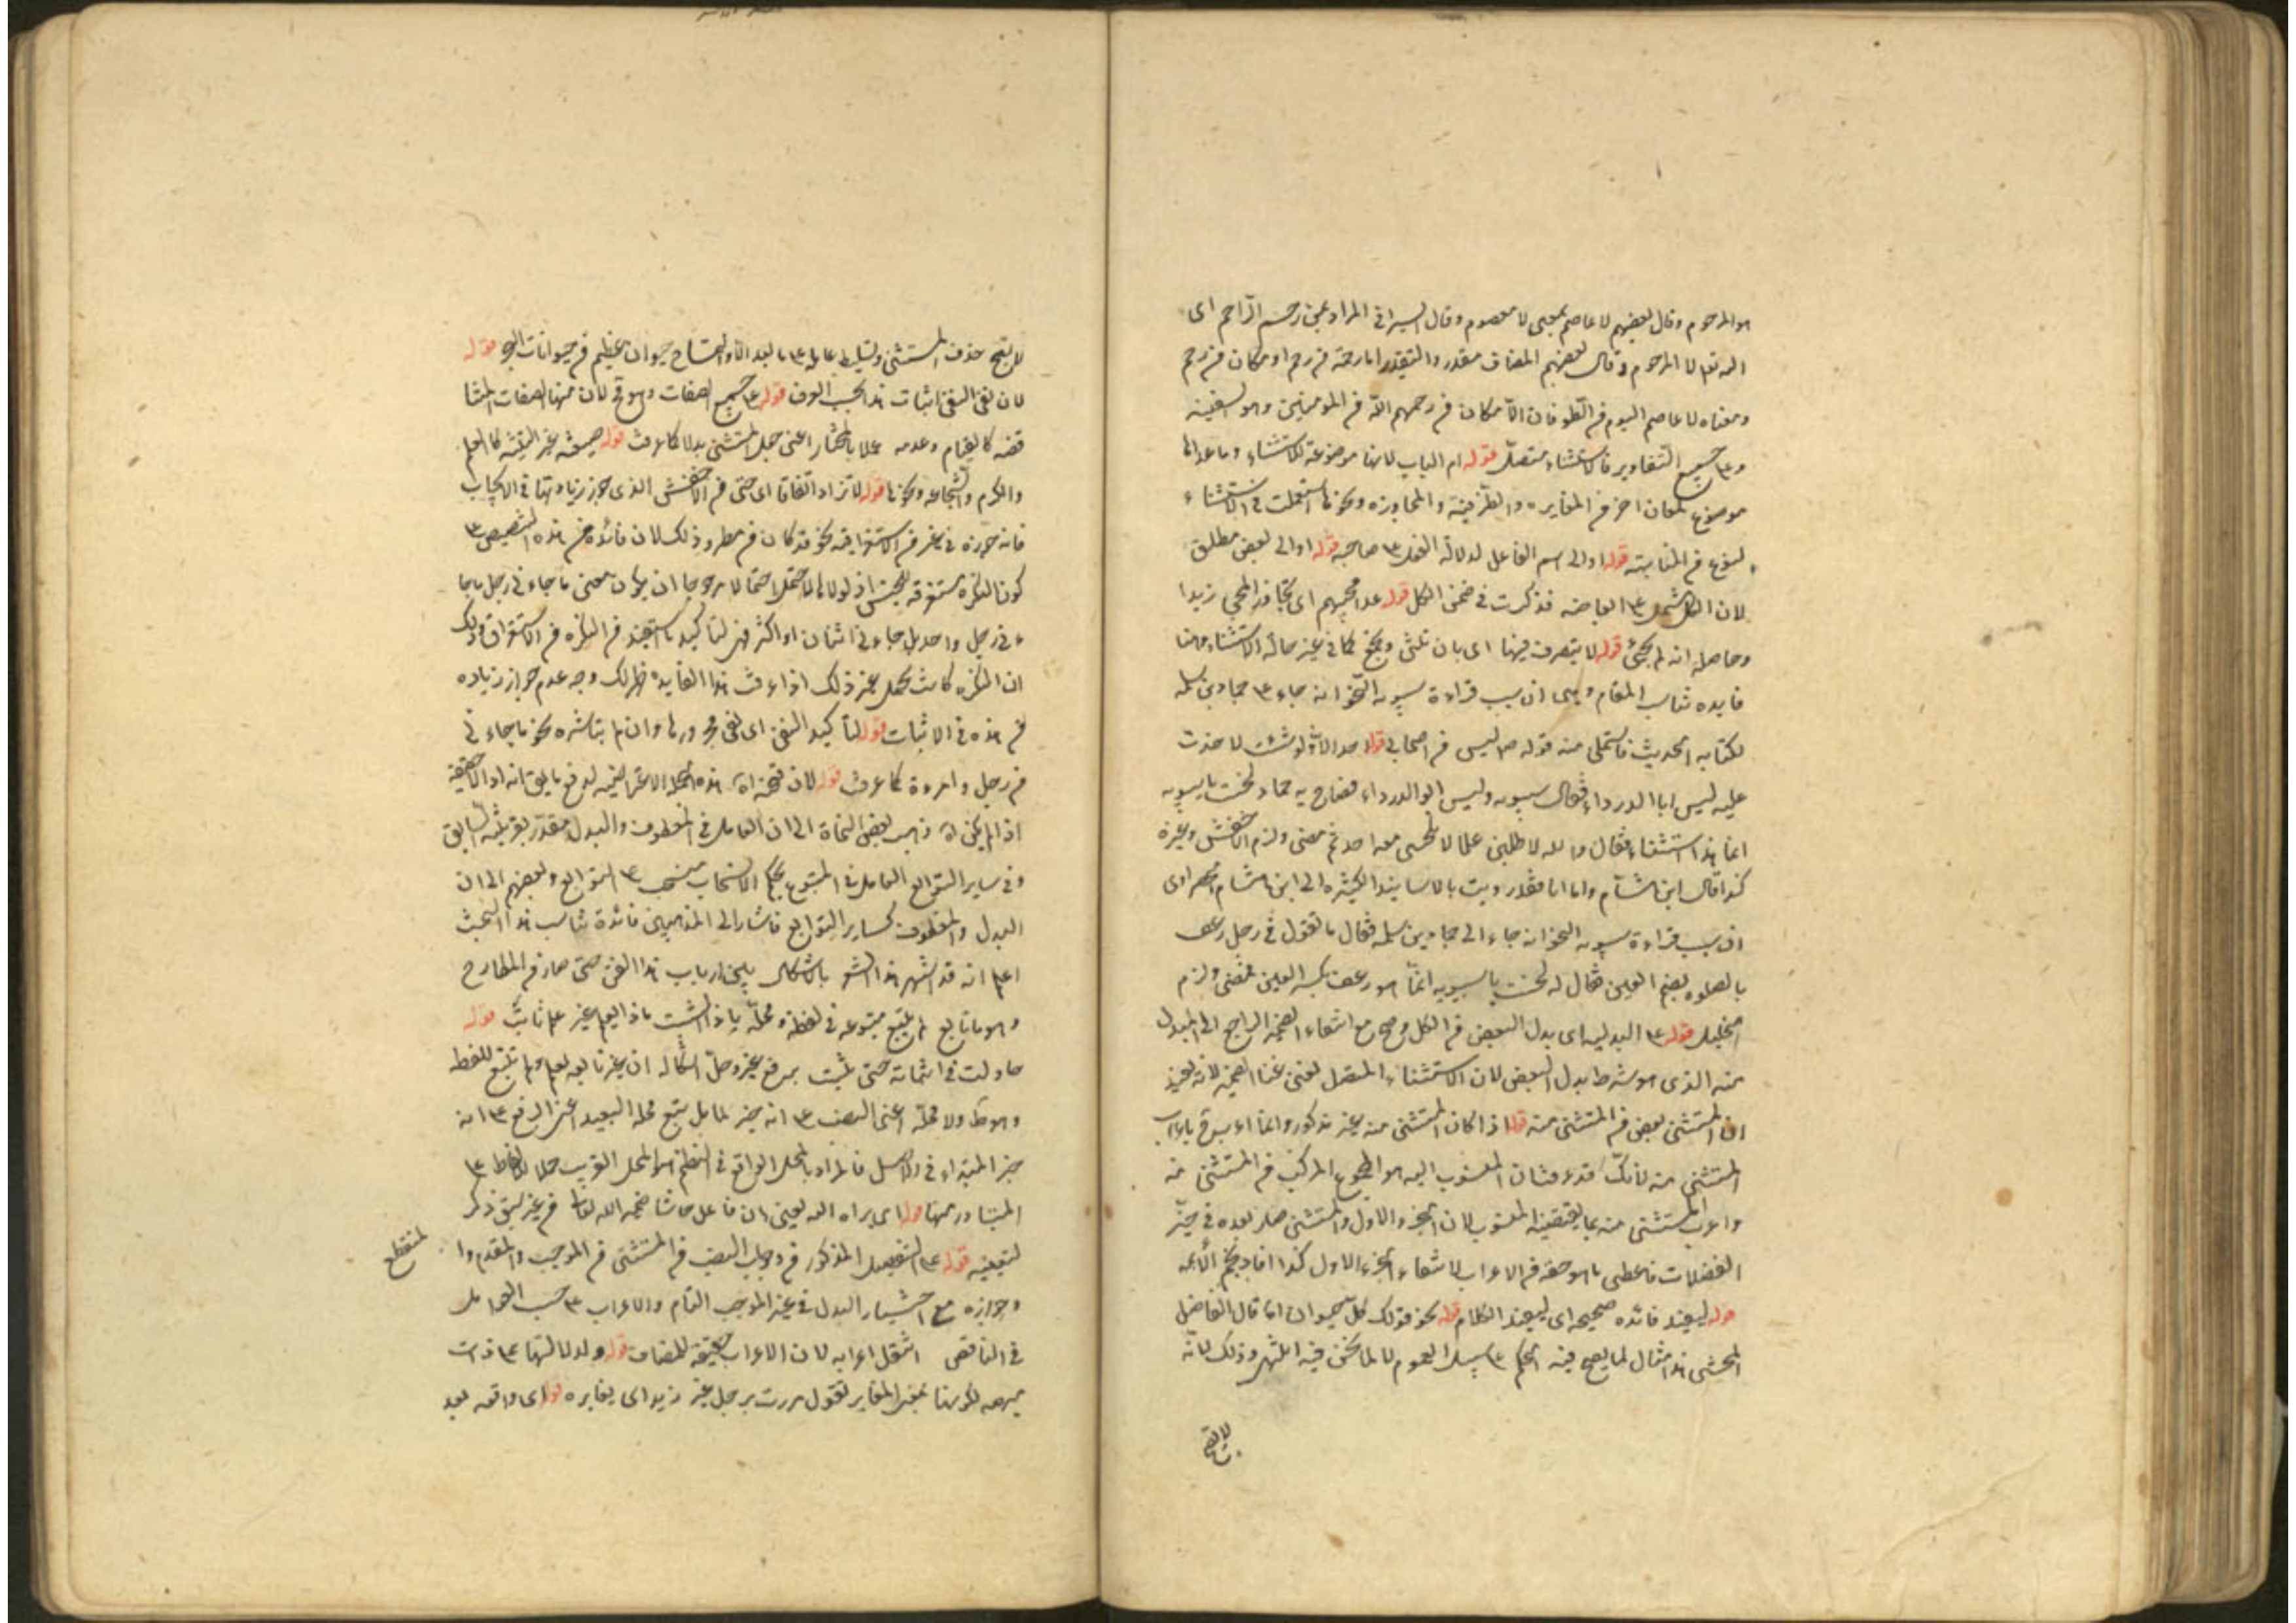 هو المرحوم وقال بعضهم لا عاصم بمعنى لا معصوم وقال السيرافي المراد بمن رحم الراحم اى
الله تع لا المرحوم وقال بعضهم المضاف مقدر والتقدير اما رحمة من رحم او مكان من رحم
ومعناه لا عاصم اليوم من الطوفان الا مكان من رحمهم الله من المومنين وهو السفينه
وع جميع التقادير فالاستثناء متصل قوله ام الباب لانها موضوعة للاستثناء وما عداها
موضوع لمعان اخر من المغايره والظرفية والمجاوزه ونحوها استعملت في الاستثناء
لنوع من المناسبة قوله او الى اسم الفاعل لدلالة الفعل ع صاحبه قوله او الى بعض مطلق
لان الكل يشمل ع ابعاضه فذكرت في ضمن الكل قوله عدا مجيئهم اى تجاوز المجى زيدا
وحاصله انه لم يجئ قوله لا يتصرف فيها اى بان تثنى وتجمع كما في غير حالة الاستثناء وهنا
فايده تناسب المقام وهى ان سبب قراءة سيبويه النحو انه جاء ع حماد بن سلمه
لكتابه الحديث فاستملى منه قوله ص ليس من اصحابي قوله احد الا ولو شئت لاخذت
عليه ليس ابا الدرداء فقال سيبويه وليس ابو الدرداء فصاح به حماد لحنت يا سيبويه
انما هذا استثناء فقال والله لاطلبن علما لا تلحنى معه احد ثم مضى ولزم الاخفش وغيره
كذا قال ابن هشام واما انا فقد رويت بالاسانيد الكثيره الى ابن هشام
ان سبب قراءة سيبويه النحو انه جاء الى حماد بن سلمه فقال ما تقول في رجل رعف
بالصلوه بضم العين فقال له لحنت يا سيبويه انما هو رعف بكسر العين فمضى ولزم
الخليل قوله ع البدليه اى بدل البعض من الكل وصح مع انتفاء الضمير الراجع الى المبدل
منه الذى هو شرط بدل البعض لان الاستثناء المتصل يغنى غنا الضمير لانه يفيد
ان المستثنى بعض من المستثنى منه قوله اذا كان المستثنى منه غير مذكور وانما اعرب باعراب
المستثنى منه لانك قد عرفت ان المنسوب اليه هو المجموع المركب من المستثنى منه
واعرب المستثنى منه بما يقتضيه المنسوب لان الجزء الاول والمستثنى صار بعده في حيز
الفضلات فاعطى ما هو حقه من الاعراب لانتفاء الجزء الاول كذا افاد نجم الائمه
قوله ليفيد فائده صحيحه اى ليفيد الكلام قوله نحو قولك كل حيوان انما قال الفاضل
المحشى هذا مثال لما يصح فيه الحكم ع سبيل العموم لا لما نحن فيه وذلك لانه
لا يقبح حذف المستثنى وتسليط عامله ع ما بعد الا والتمساح حيوان عظيم من حيوانات البحر قوله
لان نفى النفى اثبات هذا بحسب العرف قوله ع جميع الصفات وهو مح لان منها الصفات المتنا
قضه كالقيام وعدمه عملا بالمختار اعنى جعل المستثنى بدلا كما عرفت قوله كالعلم
والكرم والشجاعه ونحوها قوله لا تزاد اتفاقا اى حتى من الاخفش الذى جوز زيادتها في الايجاب
فانه جوزه في غير من الاستغراقيه نحو قد كان من مطر وذلك لان فائدة من هذه التنصيص ع
كون النكره مستغرقه للجنس اذ لولاها لاحتمل احتمالا مرجوحا ان يكون معنى ما جاء في رجل ما جا
ء في رجل واحد بل جاء في اثنان او اكثر فهي لتاكيد ما استفيد من النكره من الاستغراق وذلك
ان النكره كانت تحتمل غير ذلك اذا عرفت هذا الفايده ظهر لك وجه عدم جواز زياده
من هذه في الاثبات قوله لتاكيد النفى اى نفى مجرورها وان لم يباشره نحو ما جاء في
من رجل وامرءة كما عرفت قوله لان فتحة اه هذه الجمله الاعتراضيه لدفع ما يقال انه
اذ لم يكن اه ذهب بعض النحاة الى ان العامل في المعطوف والبدل مقدر بقرينة السابق
وفي ساير التوابع العامل في المتبوع بحكم الانسحاب منسحب ع التوابع وبعضهم الى ان
البدل والمعطوف كساير التوابع فاشار الى المذهبين فائدة تناسب هذا البحث
اعلم انه قد اشتهر هذا الشعر باشكال بين ارباب هذا الفن حتى صار من المطارح
وهو ما تابع لم يتبع متبوعه في لفظه ومحله يا ذا الثبت ماذا بعلم غير علم ثابت قوله
حاولت في اثباته حتى ثبت برفع غير وحل اشكاله ان غير تابع لعلم ولم تتبع للفظ
وهو ظ ولا محله اعنى النصب ع انه خبر لما بل يتبع محله البعيد اعنى الرفع ع انه
خبر المبتداء في الاصل فالمراد بالمحل الواقع في النظم هو المحل القريب
المتبادر منها قوله اى براه الله يعنى ان فاعل حاشا ضمير الله تعالى من غير سبق ذكر
لتعينه قوله ع التفصيل المذكور من وجوب النصب في المستثنى من الموجب والمقدم وا
لمنقطع
وجوازه مع اختيار البدل في غير الموجب التام والاعراب ع حسب العوامل
في الناقص انتقل اعرابه لان الاعراب حقيقة للمضاف قوله ولدلالتها ع ذات
مبهمه لكونها بمعنى المغاير تقول مررت برجل غير زيد اى يغايره قوله اى واقعه بعد